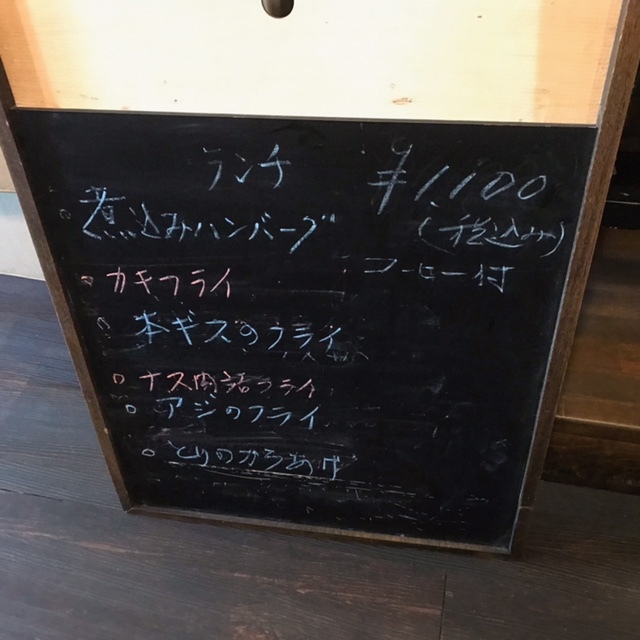 ランチ ¥1,100
煮込みハンバーグ (税込み)
コーヒー付
カキフライ
本ギスのフライ
ナス肉詰フライ
アジのフライ
とりのからあげ